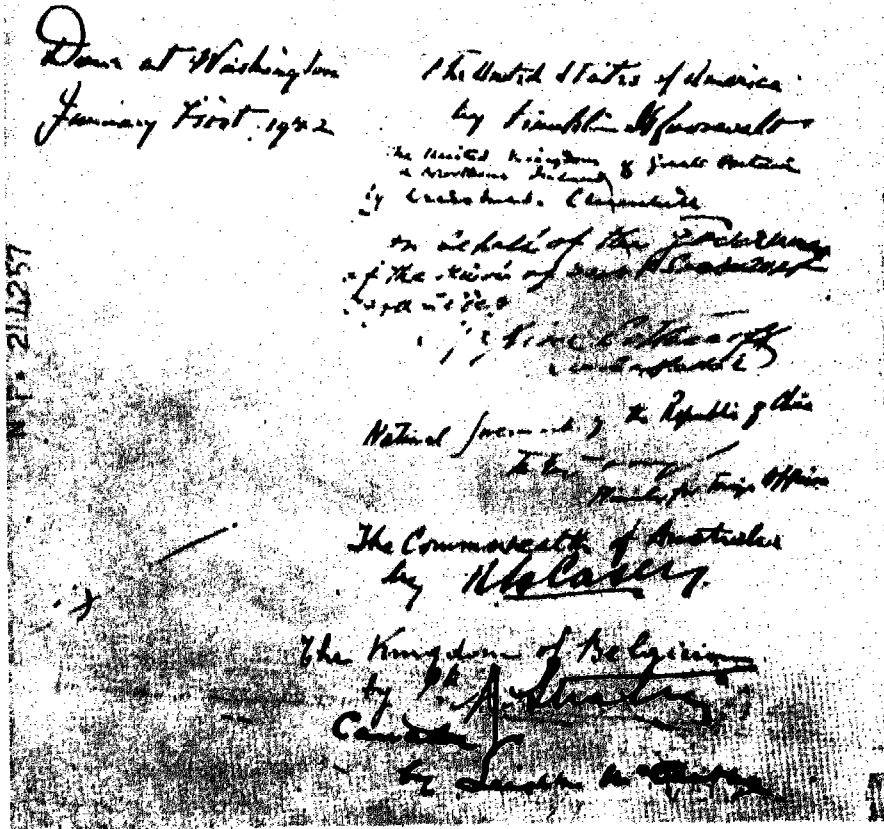 Done at Washington
January First 1942
The United States of America
by Franklin D Roosevelt
The United Kingdom of Great Britain
& Northern Ireland
by Churchill
on behalf of the Government
of the Union of Soviet Socialist
by Maxim Litvinoff
Ambassador
National Government of the Republic of China
Minister for Foreign Affairs
The Commonwealth of Australia
by R G Casey.
The Kingdom of Belgium
by
Canada
by Leighton McCarthy
N.E. 211,257